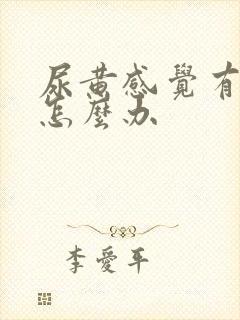 尿黄感覺有
怎麼办
李愛平